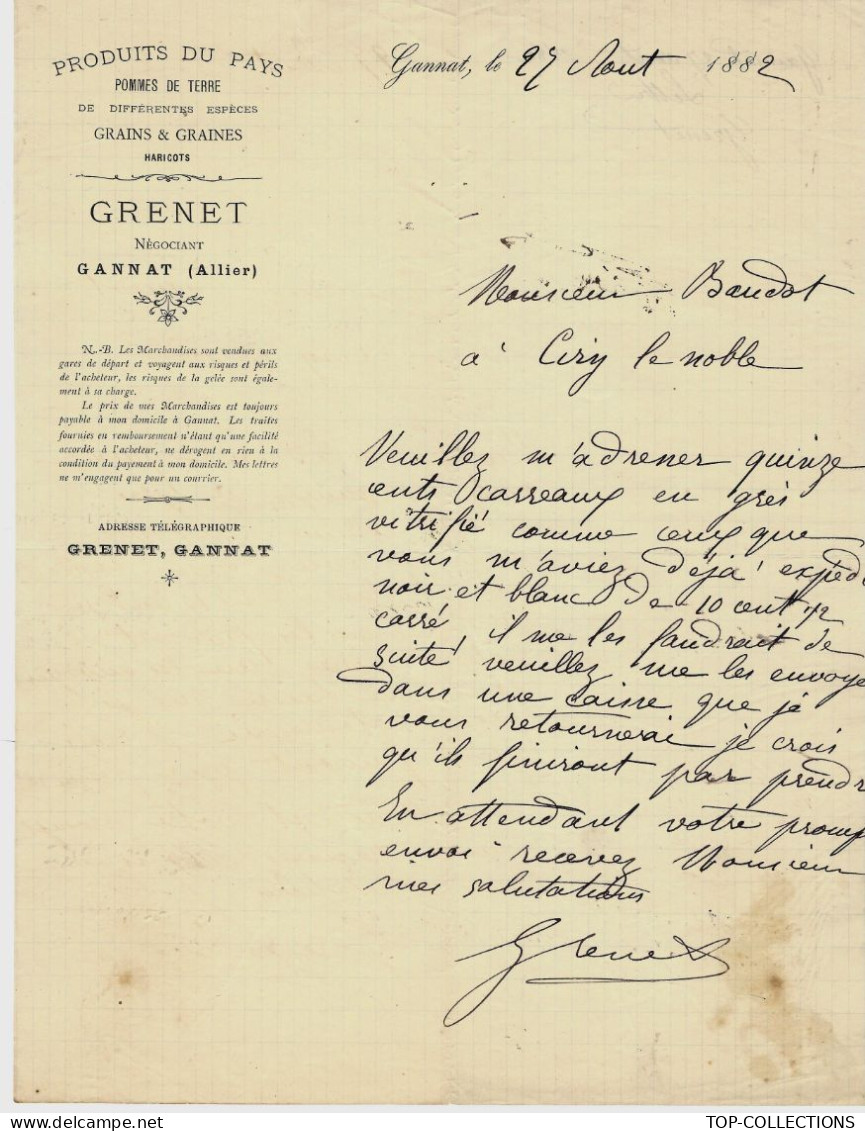 PRODUITS DU PAYS
POMMES DE TERRE
DE DIFFÉRENTES ESPÈCES
GRAINS & GRAINES
HARICOTS
GRENET
NÉGOCIANT
GANNAT (Allier)
N.-B. Les Marchandises sont vendues aux
gares de départ et voyagent aux risques et périls
de l'acheteur, les risques de la gelée sont égale-
ment à sa charge.
Le prix de mes Marchandises est toujours
payable à mon domicile à Gannat. Les traites
fournies en remboursement n'étant qu'une facilité
accordée à l'acheteur, ne dérogent en rien à la
condition du payement à mon domicile. Mes lettres
ne m'engagent que pour un courrier.
ADRESSE TÉLÉGRAPHIQUE
GRENET, GANNAT
Gannat, le 27 Aout 1882
Monsieur Baudot
à Ciry le noble
Veuillez m'adresser quinze
cents carreaux en grès
vitrifié comme ceux que
vous m'aviez déjà expédi
noir et blanc de 10 cent 1/2
carré, il me les faudrait de
suite, veuillez me les envoye
dans une caisse que je
vous retournerai je crois
qu'ils finiront par prendr
En attendant votre promp
envoi recevez Monsieur
mes salutations
Grenet
TOP-COLLECTIONS